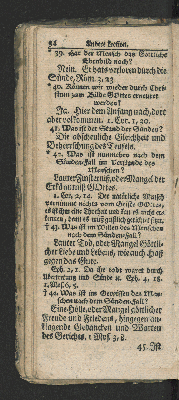 54 Andere Lection.
39. Hat der Mensch das Göttliche
Ebenbild noch?
Nein. Er hats verloren durch die
Sünde, Röm. 3, 23
40. Können wir wieder durch Chri-
stum zum Bilde GOttes erneuret
werden?
Ja. Hier dem Anfang nach, dort
aber vollkommen. 1. Cor. 1, 20.
41. Was ist der Stand der Sünden?
Die abscheuliche Gleichheit und
Beherrschung des Teufels.
42. Was ist nunmehro nach dem
Sünden-Fall im Verstande des
Menschen?
Lauter Finsterniß, oder Mangel der
Erkäntniß GOttes.
1. Cor. 2, 14. Der natürliche Mensch
vernimmt nichts vom Geiste GOttes,
es ist ihm eine Thorheit und kan es nicht er-
kennen, denn es muß geistlich gerichtet seyn.
† 43. Was ist im Willen des Menschen
nach dem Sünden-Fall?
Lauter Tod, oder Mangel Göttli-
cher Liebe und Lebens, wie auch Haß
gegen das Gute.
Eph. 2, 1. Da ihr todt waret durch
Übertretung und Sünde 2c. Eph. 4, 18.
1. Mos. 6, 5.
† 44. Was ist im Gewissen des Men-
schen nach dem Sünden-Fall?
Eine Hölle, oder Mangel göttlicher
Freude und Friedens, hingegen an-
klagende Gedancken und Warten
des Gerichts. 1 Mos. 3, 8.
45. Ist